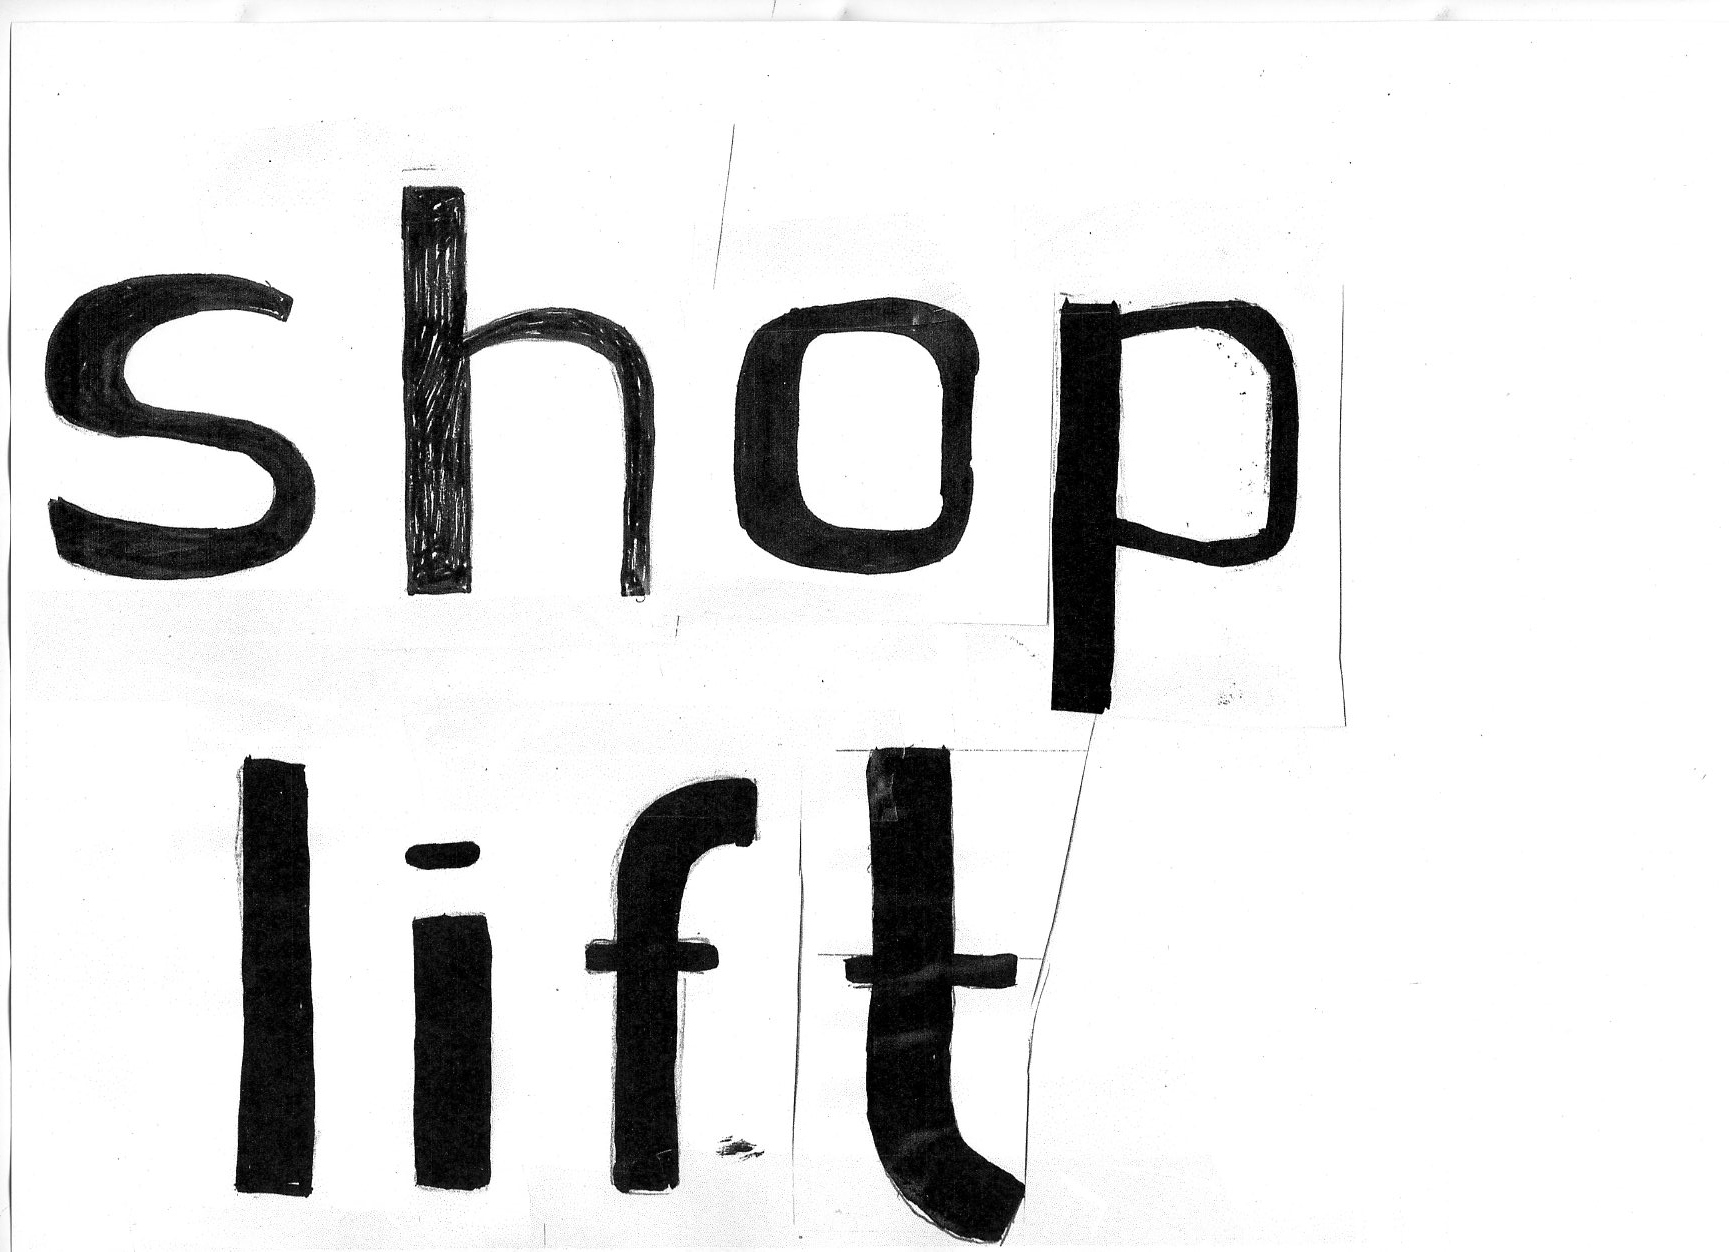 shop
lift